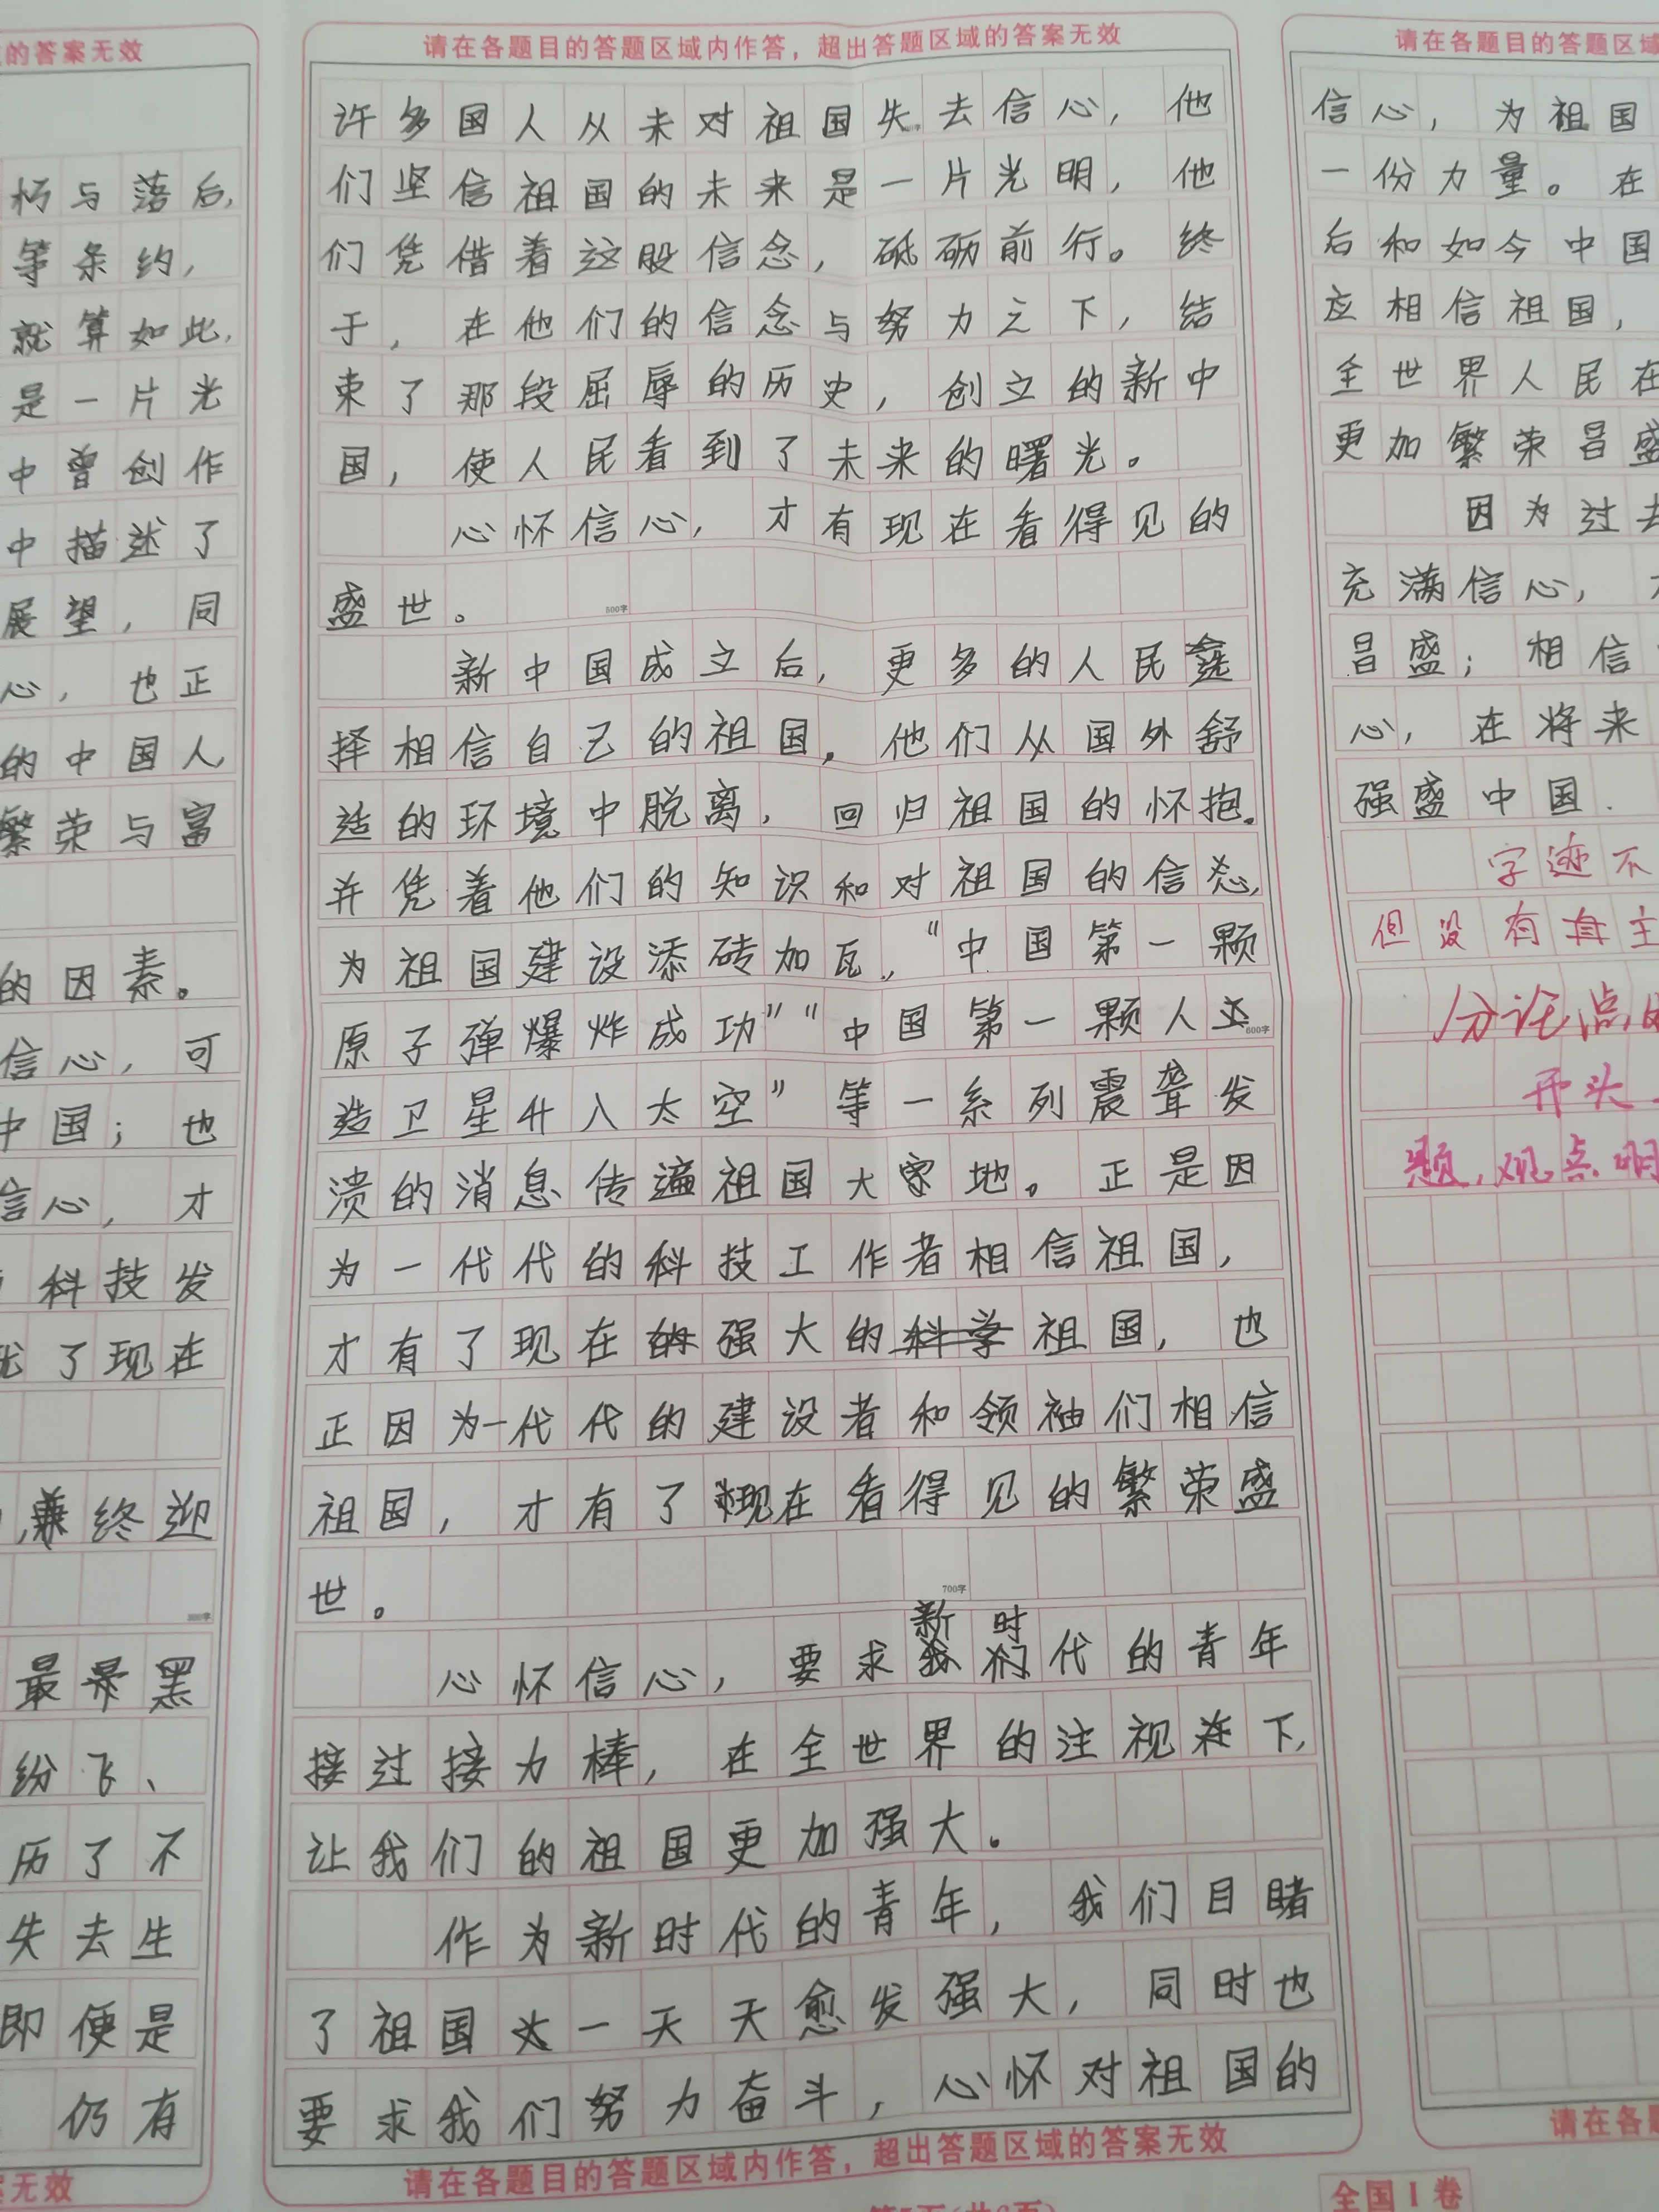 的答案无效
朽与落后,
等条约,
就算如此,
是一片光
中曾创作
中描述了
展望,同
心,也正
的中国人,
繁荣与富
的因素。
信心,可
中国;也
信心,才
科技发
了现在
终迎
300字
最黑
纷飞、
历了不
失去生
即便是
仍有
案无效
请在各题目的答题区域内作答,超出答题区域的答案无效
许多国人从未对祖国失去信心,他
们坚信祖国的未来是一片光明,他
们凭借着这股信念,砥砺前行。终
于,在他们的信念与努力之下,结
束了那段屈辱的历史,创立的新中
国,使人民看到了未来的曙光。
心怀信心,才有现在看得见的
盛世。
500字
新中国成立后,更多的人民选
择相信自己的祖国。他们从国外舒
适的环境中脱离,回归祖国的怀抱。
并凭着他们的知识和对祖国的信念,
为祖国建设添砖加瓦,“中国第一颗
原子弹爆炸成功”“中国第一颗人工
600字
造卫星升入太空”等一系列震聋发
溃的消息传遍祖国大家地。正是因
为一代代的科技工作者相信祖国,
才有了现在强大的祖国,也
正因为一代代的建设者和领袖们相信
祖国,才有了现在看得见的繁荣盛
世。
700字
心怀信心,要求新时代的青年
接过接力棒,在全世界的注视下,
让我们的祖国更加强大。
作为新时代的青年,我们目睹
了祖国一天天愈发强大,同时也
要求我们努力奋斗,心怀对祖国的
请在各题目的答题区域内作答,超出答题区域的答案无效
全国I卷
请在各题目的答题区域
信心,为祖国
一份力量。在
后和如今中国
应相信祖国,
全世界人民在
更加繁荣昌盛
因为过去
充满信心,
昌盛;相信
心,在将来
强盛中国.
字迹不
但没有主
分论点
开头
题,观点明
请在各题